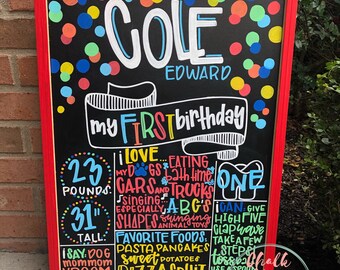 COLE
EDWARD
my FIRST birthday
23
POUNDS
31"
TALL
I SAY: DOG
MOM MOM
I LOVE...
MY DOGS
CARS AND
SINGING
ESPECIALLY
SHAPES
EATING
bath time
TRUCKS
ABC's
swinging
ANIMAL TOYS
FAVORITE FOODS:
PASTA, PANCAKES
sweet POTATOES
PIZZA & FRUIT
ONE
I CAN: GIVE
HIGH FIVE
CLAP wave
TAKE A FEW
STEPS
Chalk